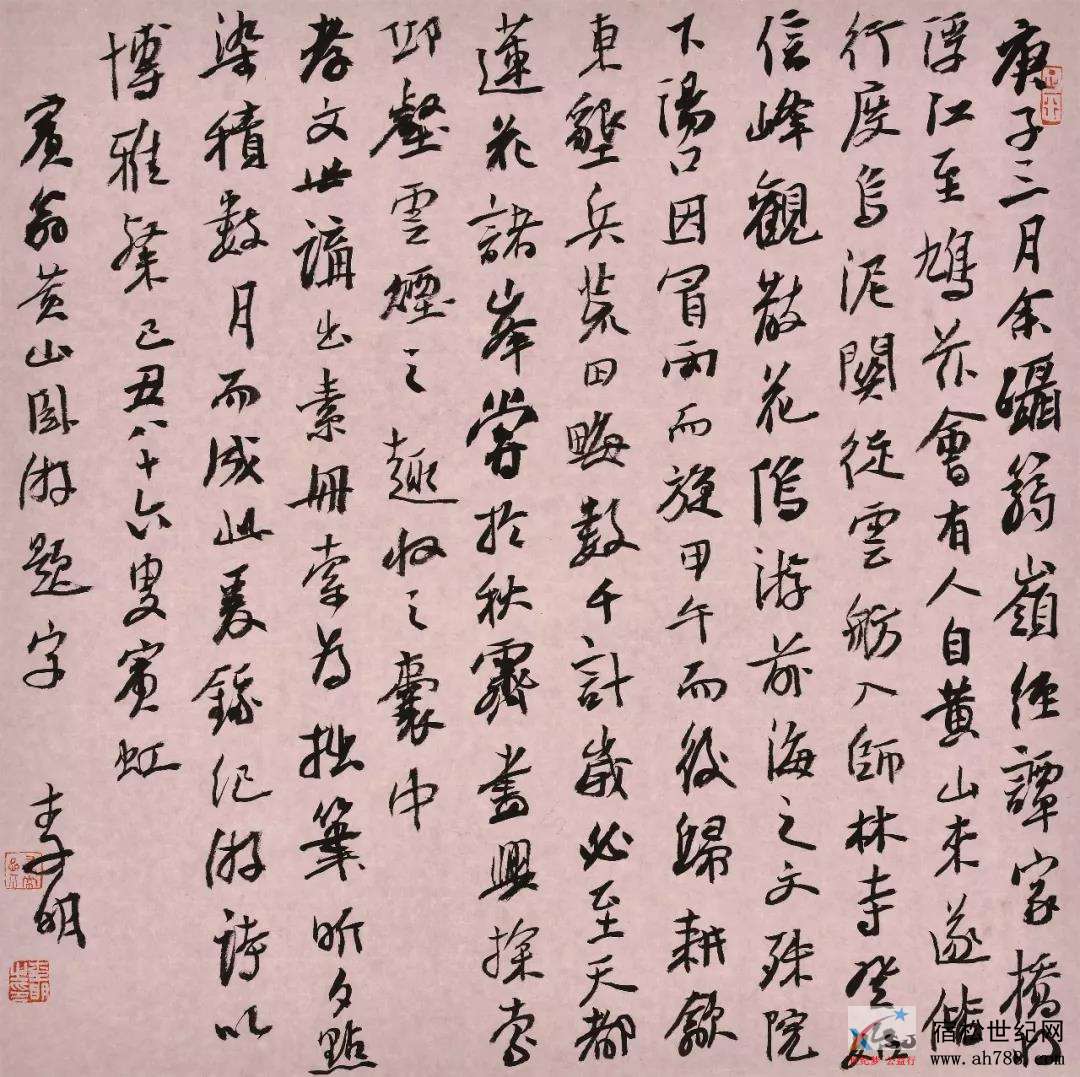 庚子三月余躡蒻嶺经譚家橋
浮江至鳩茲會有人自黄山来遂偕
行度烏泥關徒雲舫入師林寺登
信峰觀散花隖游前海之文殊院
下湯口因冒雨而旋甲午而後歸耕歙
東墾兵荒田畮數千計歲必至天都
蓮花諸峯嘗於秋霽畫興探奇
邱壑雲煙之趣收之囊中
孝文世講出素冊索為拙筆昕夕點
染積數月而成此夏錄纪游詩以
博雅粲己丑八十六叟賓虹
賓翁黄山卧游題字
李明
宿松世纪网
www.ah788.com